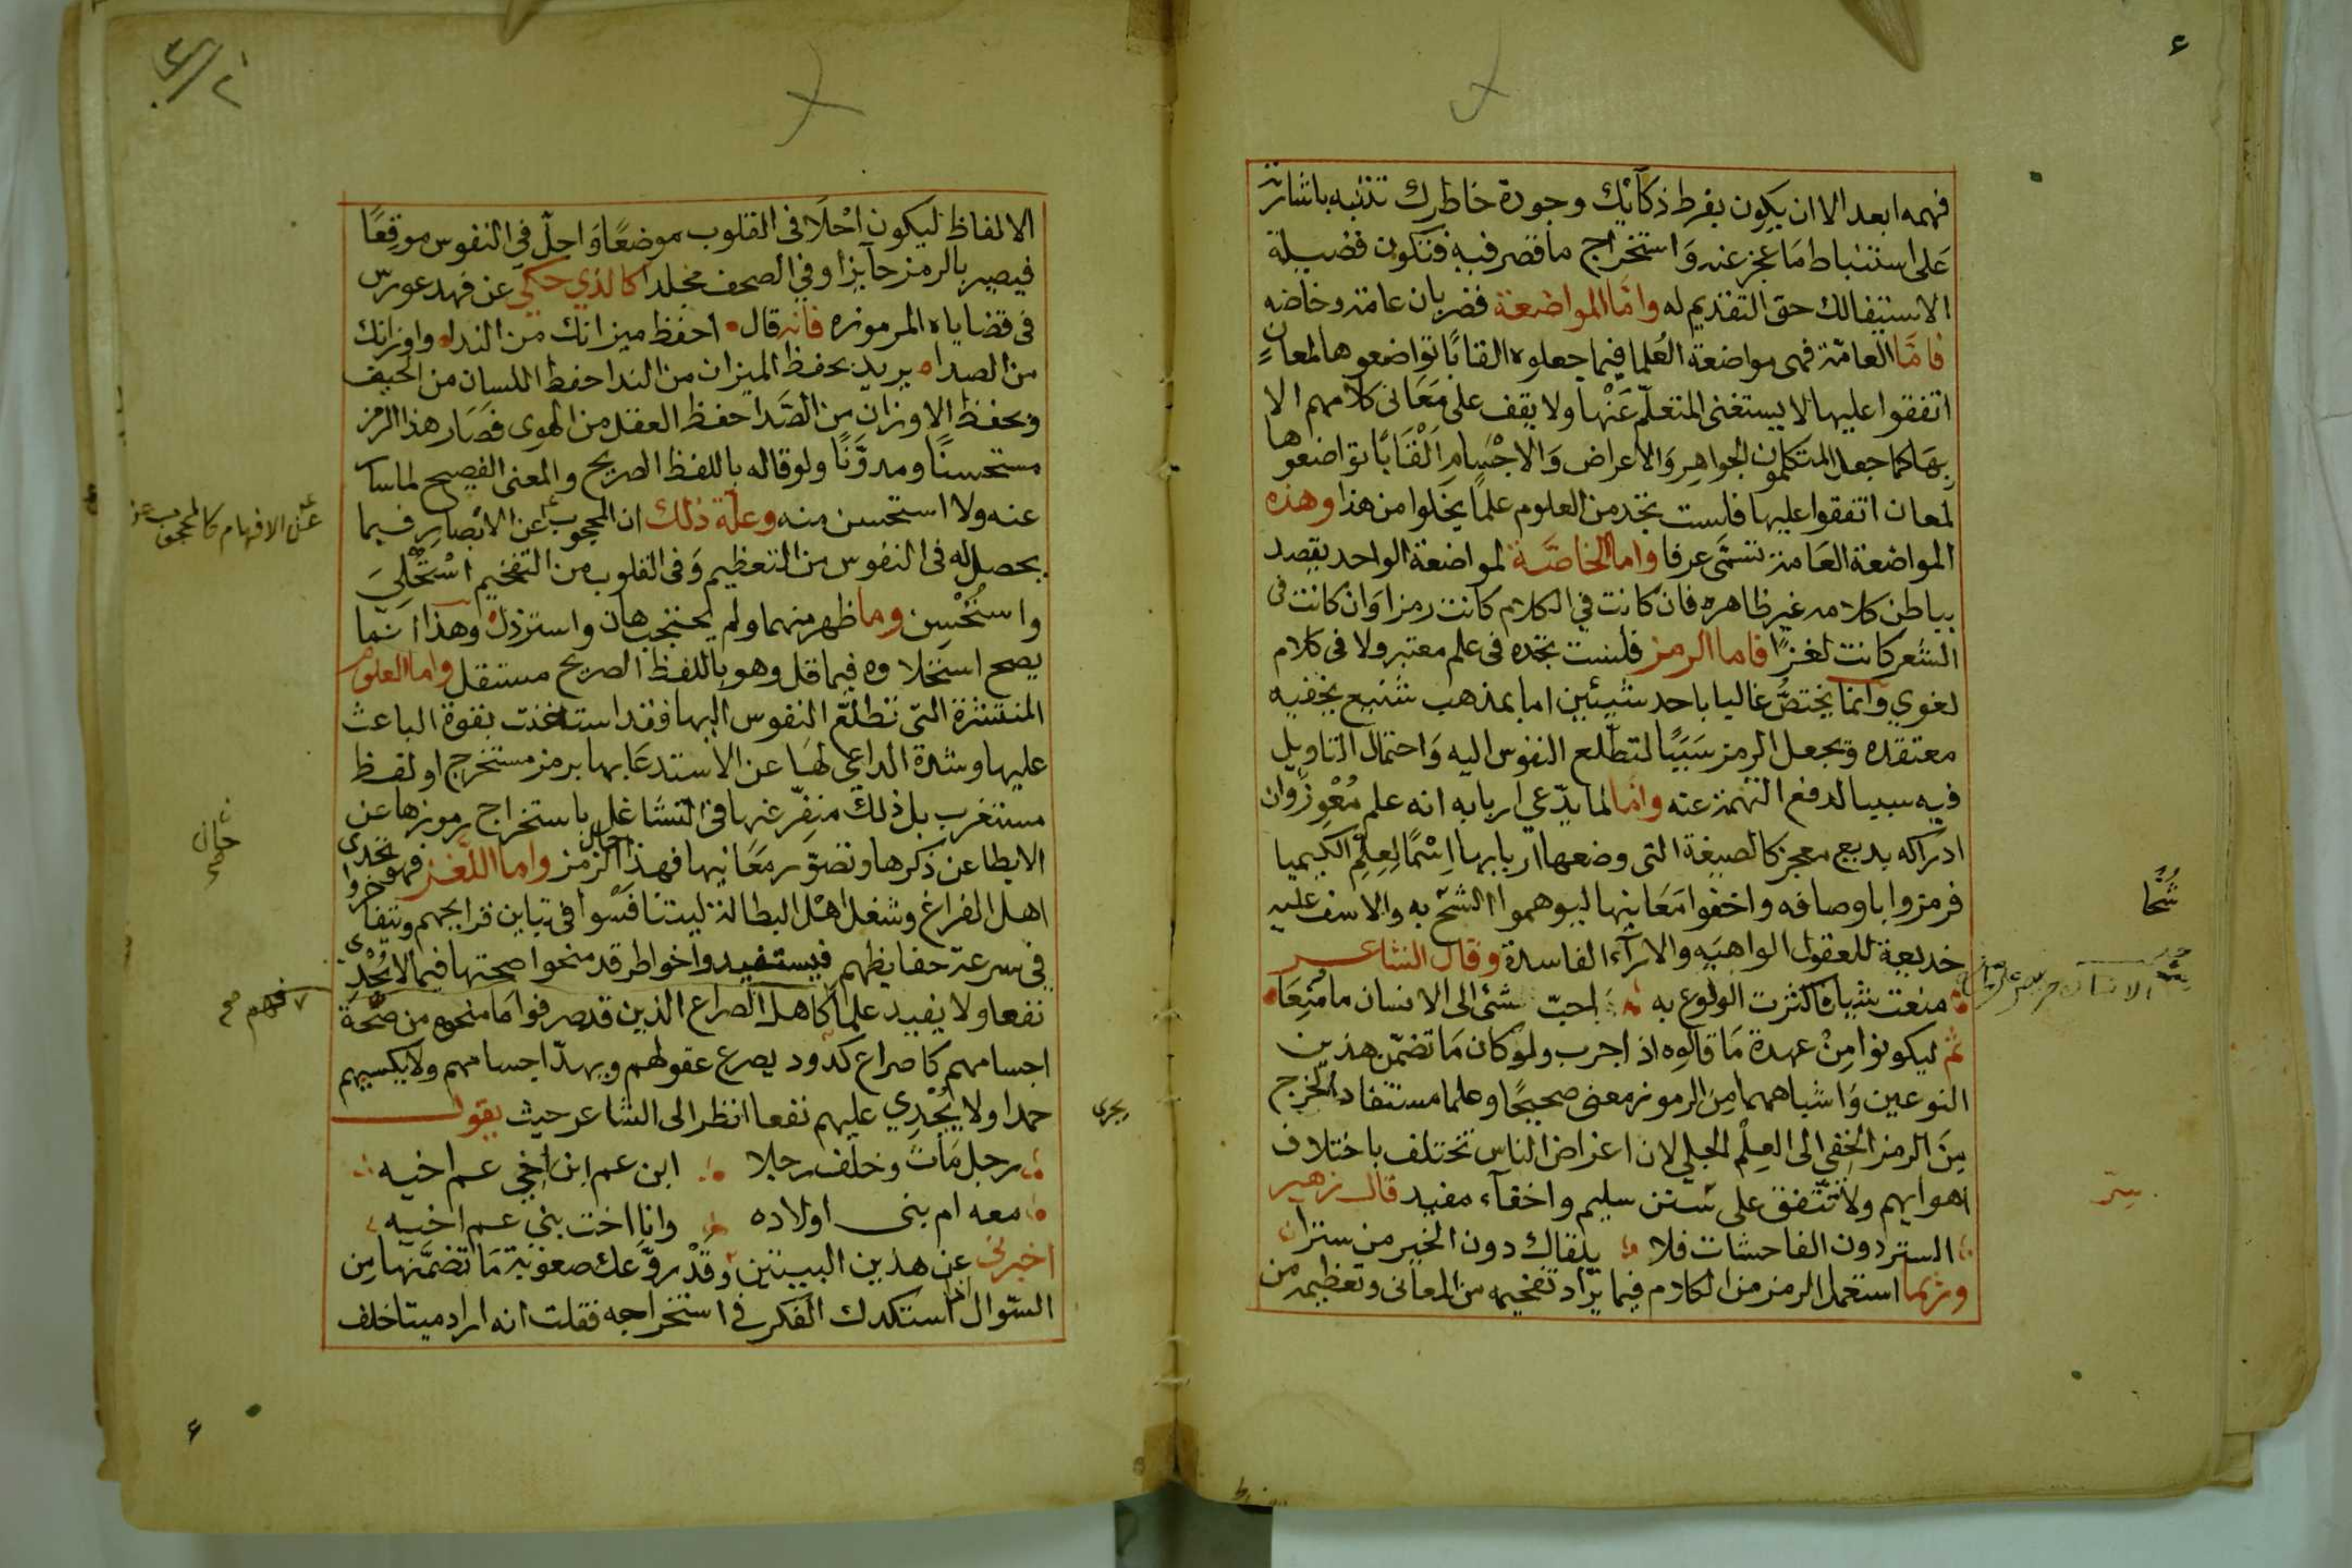 فهمه ابعد الا ان يكون بفرط ذكآئك وجودة خاطرك تتنبه باشارته
عَلى استنباط مَا عجز عنه وَاستخراج ما قصر فيه فتكون فضيلة
الاستيفا لك حق التقديم له وامّا المواضعة فضربان عامة وخاصه
فامّا العامّة فهى مواضعة العُلما فيما جعلوه القابًا تواضعوها لمعانٍ
اتفقوا عليها لا يستغنى المتعلّم عَنْها ولا يقف على مَعَانى كلامهم الا
بهَا كما جعل المتكلمون الجواهِر وَالاعراض وَالاجْسَام اَلْقَابًا تواضعوها
لمعان اتفقوا عليها فلست تجد من العلوم علمًا يخلوا من هذا وهذه
المواضعة العَامة تسَمَّى عرفا واما الخاصّة لمواضعة الواحد بقصد
بباطن كلامه غير ظاهره فان كانت في الكلام كانت رمزا وَان كانت فى
الشعر كانت لغزًا فاما الرمز فلست تجده فى علم معتبر ولا فى كلام
لغوي وانما يختصّ غالبا باحد شيئين اما بمذهب شنيع يخفيه
معتقده ويجعل الرمز سَبَبًا لتطلّع النفوس اليه وَاحتمال التاويل
فيه سببا لدفع التهمة عنه وامّا لما يدّعي اربابه انه علم مُعْوِزٌ وان
ادراكه بديع معجز كالصيغة التى وضعها اربابها اِسْمًا لِعِلْمِ الكيميا
فرمزوا باوصافه واخفوا مَعَانيها ليوهموا الشحّ به والاسف عليه
خديعة للعقول الواهيَه والارآء الفاسدة وقال الشاعر
منعت شيا فاكثرت الولوع به احبّ شئ الى الانسان ما مُنِعَا
ثم ليكونوا مِنْ عهدة مَا قالوه اذا جرب ولو كان مَا تضمّن هذين
النوعين وَاشباههما مِنَ الرموز معنى صحيحًا وعلما مستفادا لخرج
مِنَ الرمز الخفي الى العِلْم الجلي لان اغراض الناس تختلف باختلاف
اهوايهم ولا تتّفق على سَتن سليم واخفآء مفيد قال زهير
الستر دون الفاحشات فلا يلقاك دون الخير من ستر
وربما استعمل الرمز من الكلام فيما يرَاد تفخيمه من المعانى وتعظيمه من
شُحًّا
ستر
الالفاظ ليكون احْلَا فى القلوب موضعًا وَاجلّ في النفوس موقِعًا
فيصير بالرمز جآيزا وفي الصحف مخلدا كالذي حكي عن فهدغورس
فى قضاياه المرموزه فانه قال احفظ ميزانك من الندا واوزانك
من الصدا يريد بحفظ الميزان من الندا حفظ اللسان من الحيف
وبحفظ الاوزان من الصَّدا حفظ العقل من الهوى فصَار هذا الرمز
مستحسنًا ومدوَّنًا ولو قاله باللفظ الصريح والمعنى الفصيح لما سار
عنه ولا استحسن منه وعلة ذلك ان المحجوب عن الابصار فيما
يحصل له فى النفوس من التعظيم وَفى القلوب من التفخيم اسْتُحْلِيَ
واستُحْسِن وما ظهر منهما ولم يحتجب هان واسترذل وهذا انّما
يصح استحلاوه فيما قل وهو باللفظ الصريح مستقل واما العلوم
المنتشرة التى تتطلّع النفوس اليها فقد استغنت بقوة الباعث
عليها وشدة الداعي لهَا عن الاستدعَا بها برمز مستخرج او لفظ
مستغرب بل ذلك منفِّر عنها فى التشاغل باستخراج رموزها عن
الابطا عن ذكرها وتصوّر معَانيها فهذا حال الرّمز واما اللّغز فهو تحدى
اهل الفراغ وشغل اهْل البطالة ليتنافَسُوا فى تباين قرايحهم ويتفاخروا
في سرعة حفايظهم فيستفيدوا خواطر قد منحوا صحتها فيما لا يُجْدى
نفعا ولا يفيد علما كاهل الصراع الذين قد صرفوا مَا منحوه من صحّة
اجسامهم كا صراع كدود يصرع عقولهم ويهدّ اجسامهم ولا يكسبهم
حمدا ولا يُجْدِي عليهم نفعا انظر الى الشاعر حيث يقول
رجل مَات وخلف رجلا ابن عم ابن اخي عم اخيه
معه ام بنى اولاده وانا اخت بني عم اخيه
اخبرنى عن هذين البيتين وقَدْ روّعك صعوبة مَا تضمَّنها مِن
السّوال اذا استكدك الفكر في استخراجه فقلت انه اراد ميتا خلف
عن الافهام كالمحجوب عن
حال
فهم صح
يجرى